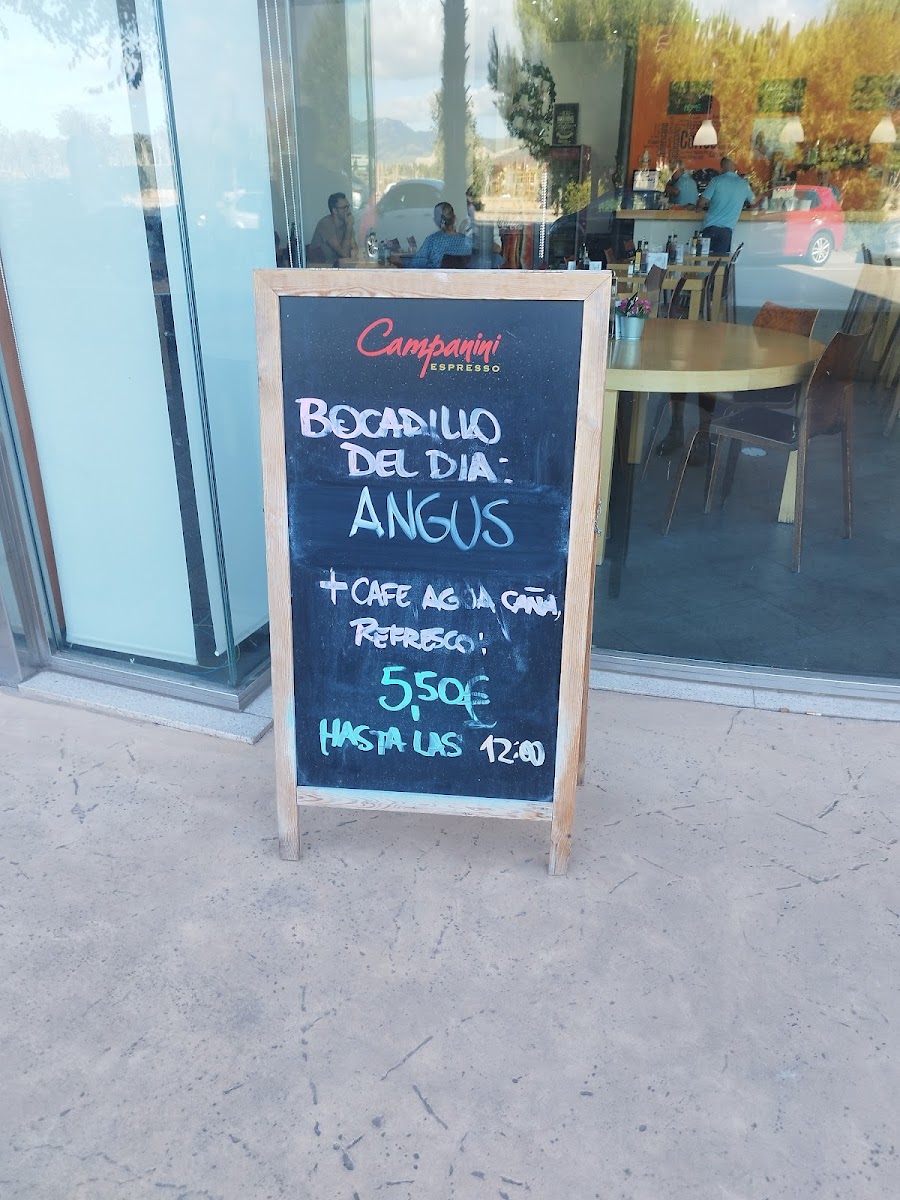 Campanini
ESPRESSO
BOCADILLO
DEL DIA:
ANGUS
+ CAFE AGUA CAÑA,
REFRESCO:
5,50€
HASTA LAS 12:00